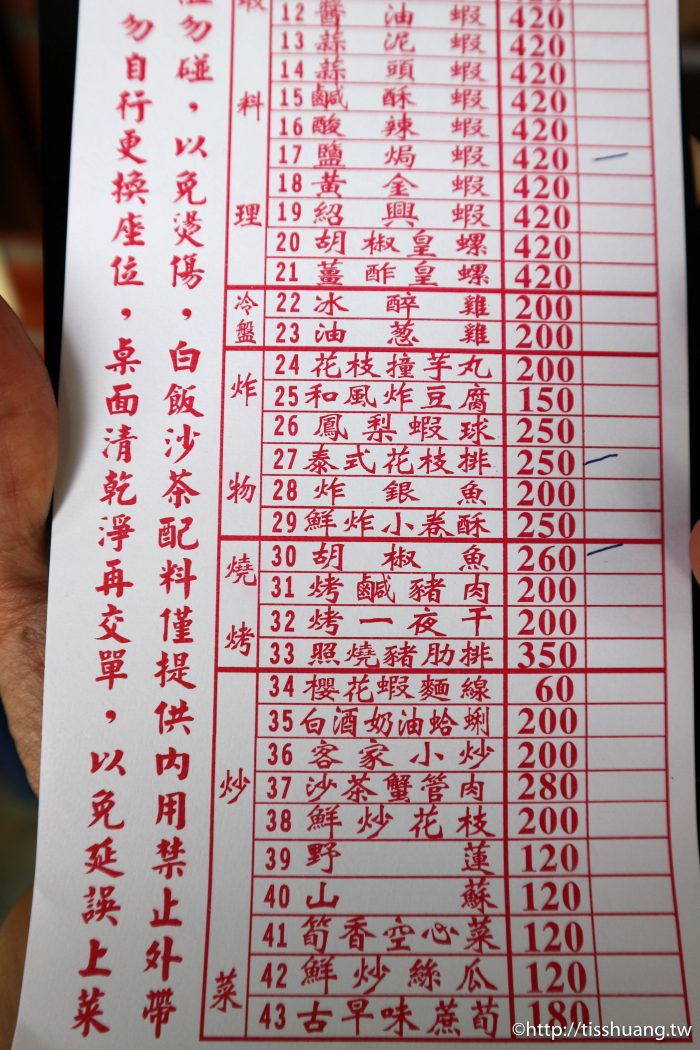 勿碰，以免燙傷，白飯沙茶配料僅提供內用禁止外帶
勿自行更換座位，桌面清乾淨再交單，以免延誤上菜
蝦料理
12 醬油蝦 420
13 蒜泥蝦 420
14 蒜頭蝦 420
15 鹹酥蝦 420
16 酸辣蝦 420
17 鹽焗蝦 420
18 黃金蝦 420
19 紹興蝦 420
20 胡椒皇螺 420
21 薑酢皇螺 420
冷盤
22 冰醉雞 200
23 油蔥雞 200
炸物
24 花枝撞芋丸 200
25 和風炸豆腐 150
26 鳳梨蝦球 250
27 泰式花枝排 250
28 炸銀魚 200
29 鮮炸小卷酥 250
燒烤
30 胡椒魚 260
31 烤鹹豬肉 200
32 烤一夜干 200
33 照燒豬肋排 350
炒菜
34 櫻花蝦麵線 60
35 白酒奶油蛤蜊 200
36 客家小炒 200
37 沙茶蟹管肉 280
38 鮮炒花枝 200
39 野蓮 120
40 山蘇 120
41 筍香空心菜 120
42 鮮炒絲瓜 120
43 古早味蔗荀 180
©http://tisshuang.tw